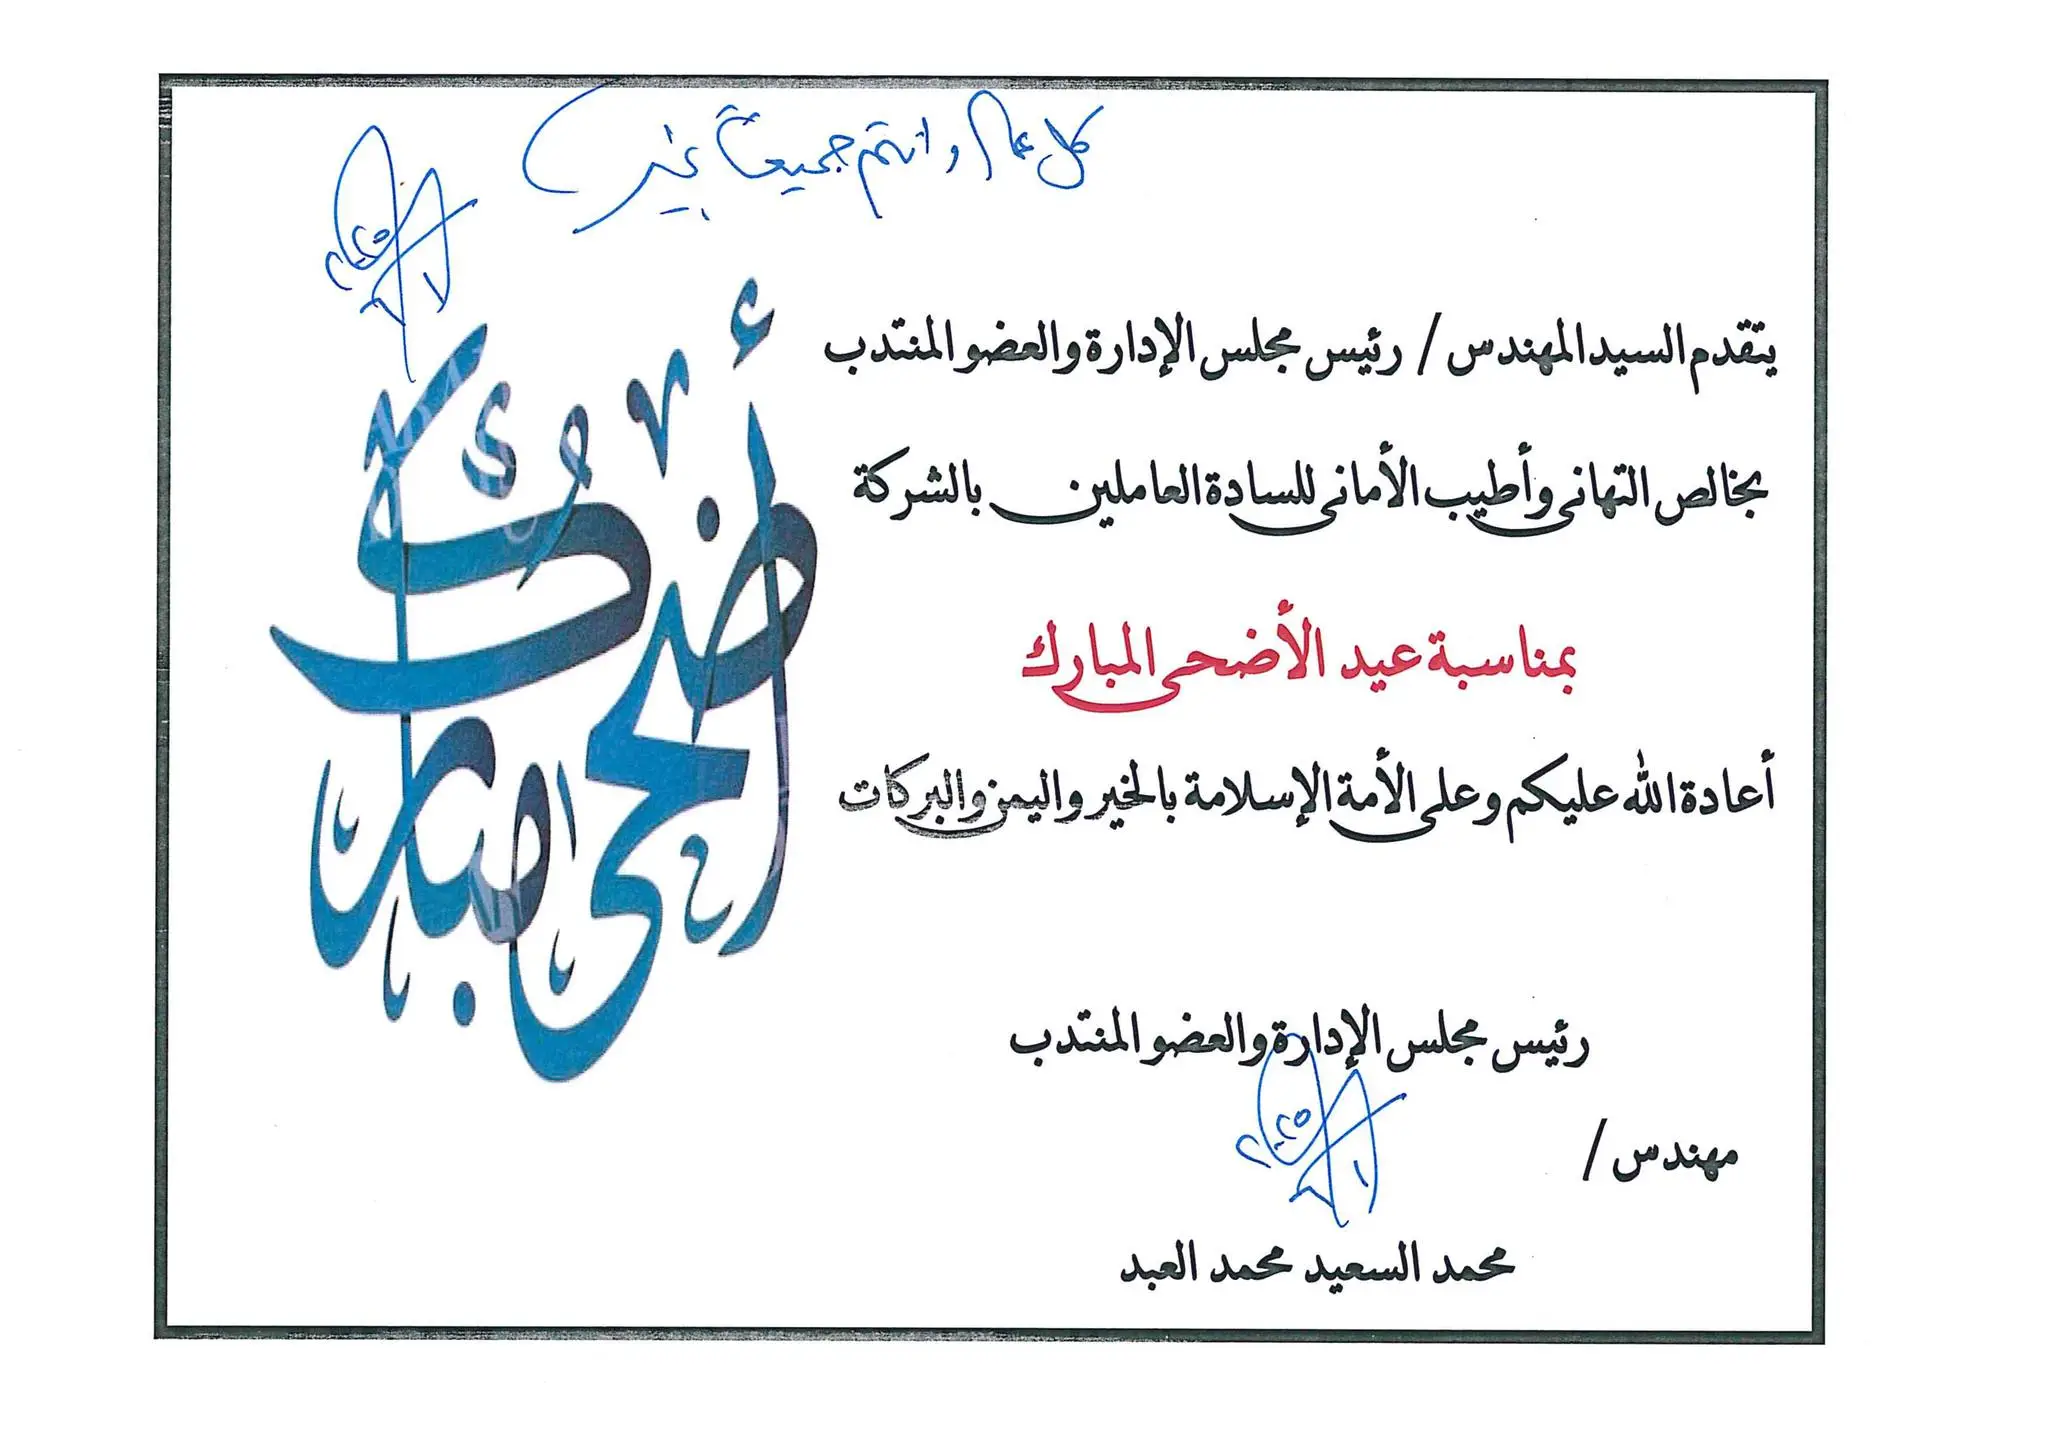 كل عام وانتم جميعاً بخير
يتقدم السيد المهندس / رئيس مجلس الإدارة والعضو المنتدب
بخالص التهانى وأطيب الأمانى للسادة العاملين بالشركة
بمناسبة عيد الأضحى المبارك
أعادة الله عليكم وعلى الأمة الإسلامة بالخير واليمن والبركات
أضحى مبارك
رئيس مجلس الإدارة والعضو المنتدب
مهندس /
محمد السعيد محمد العبد